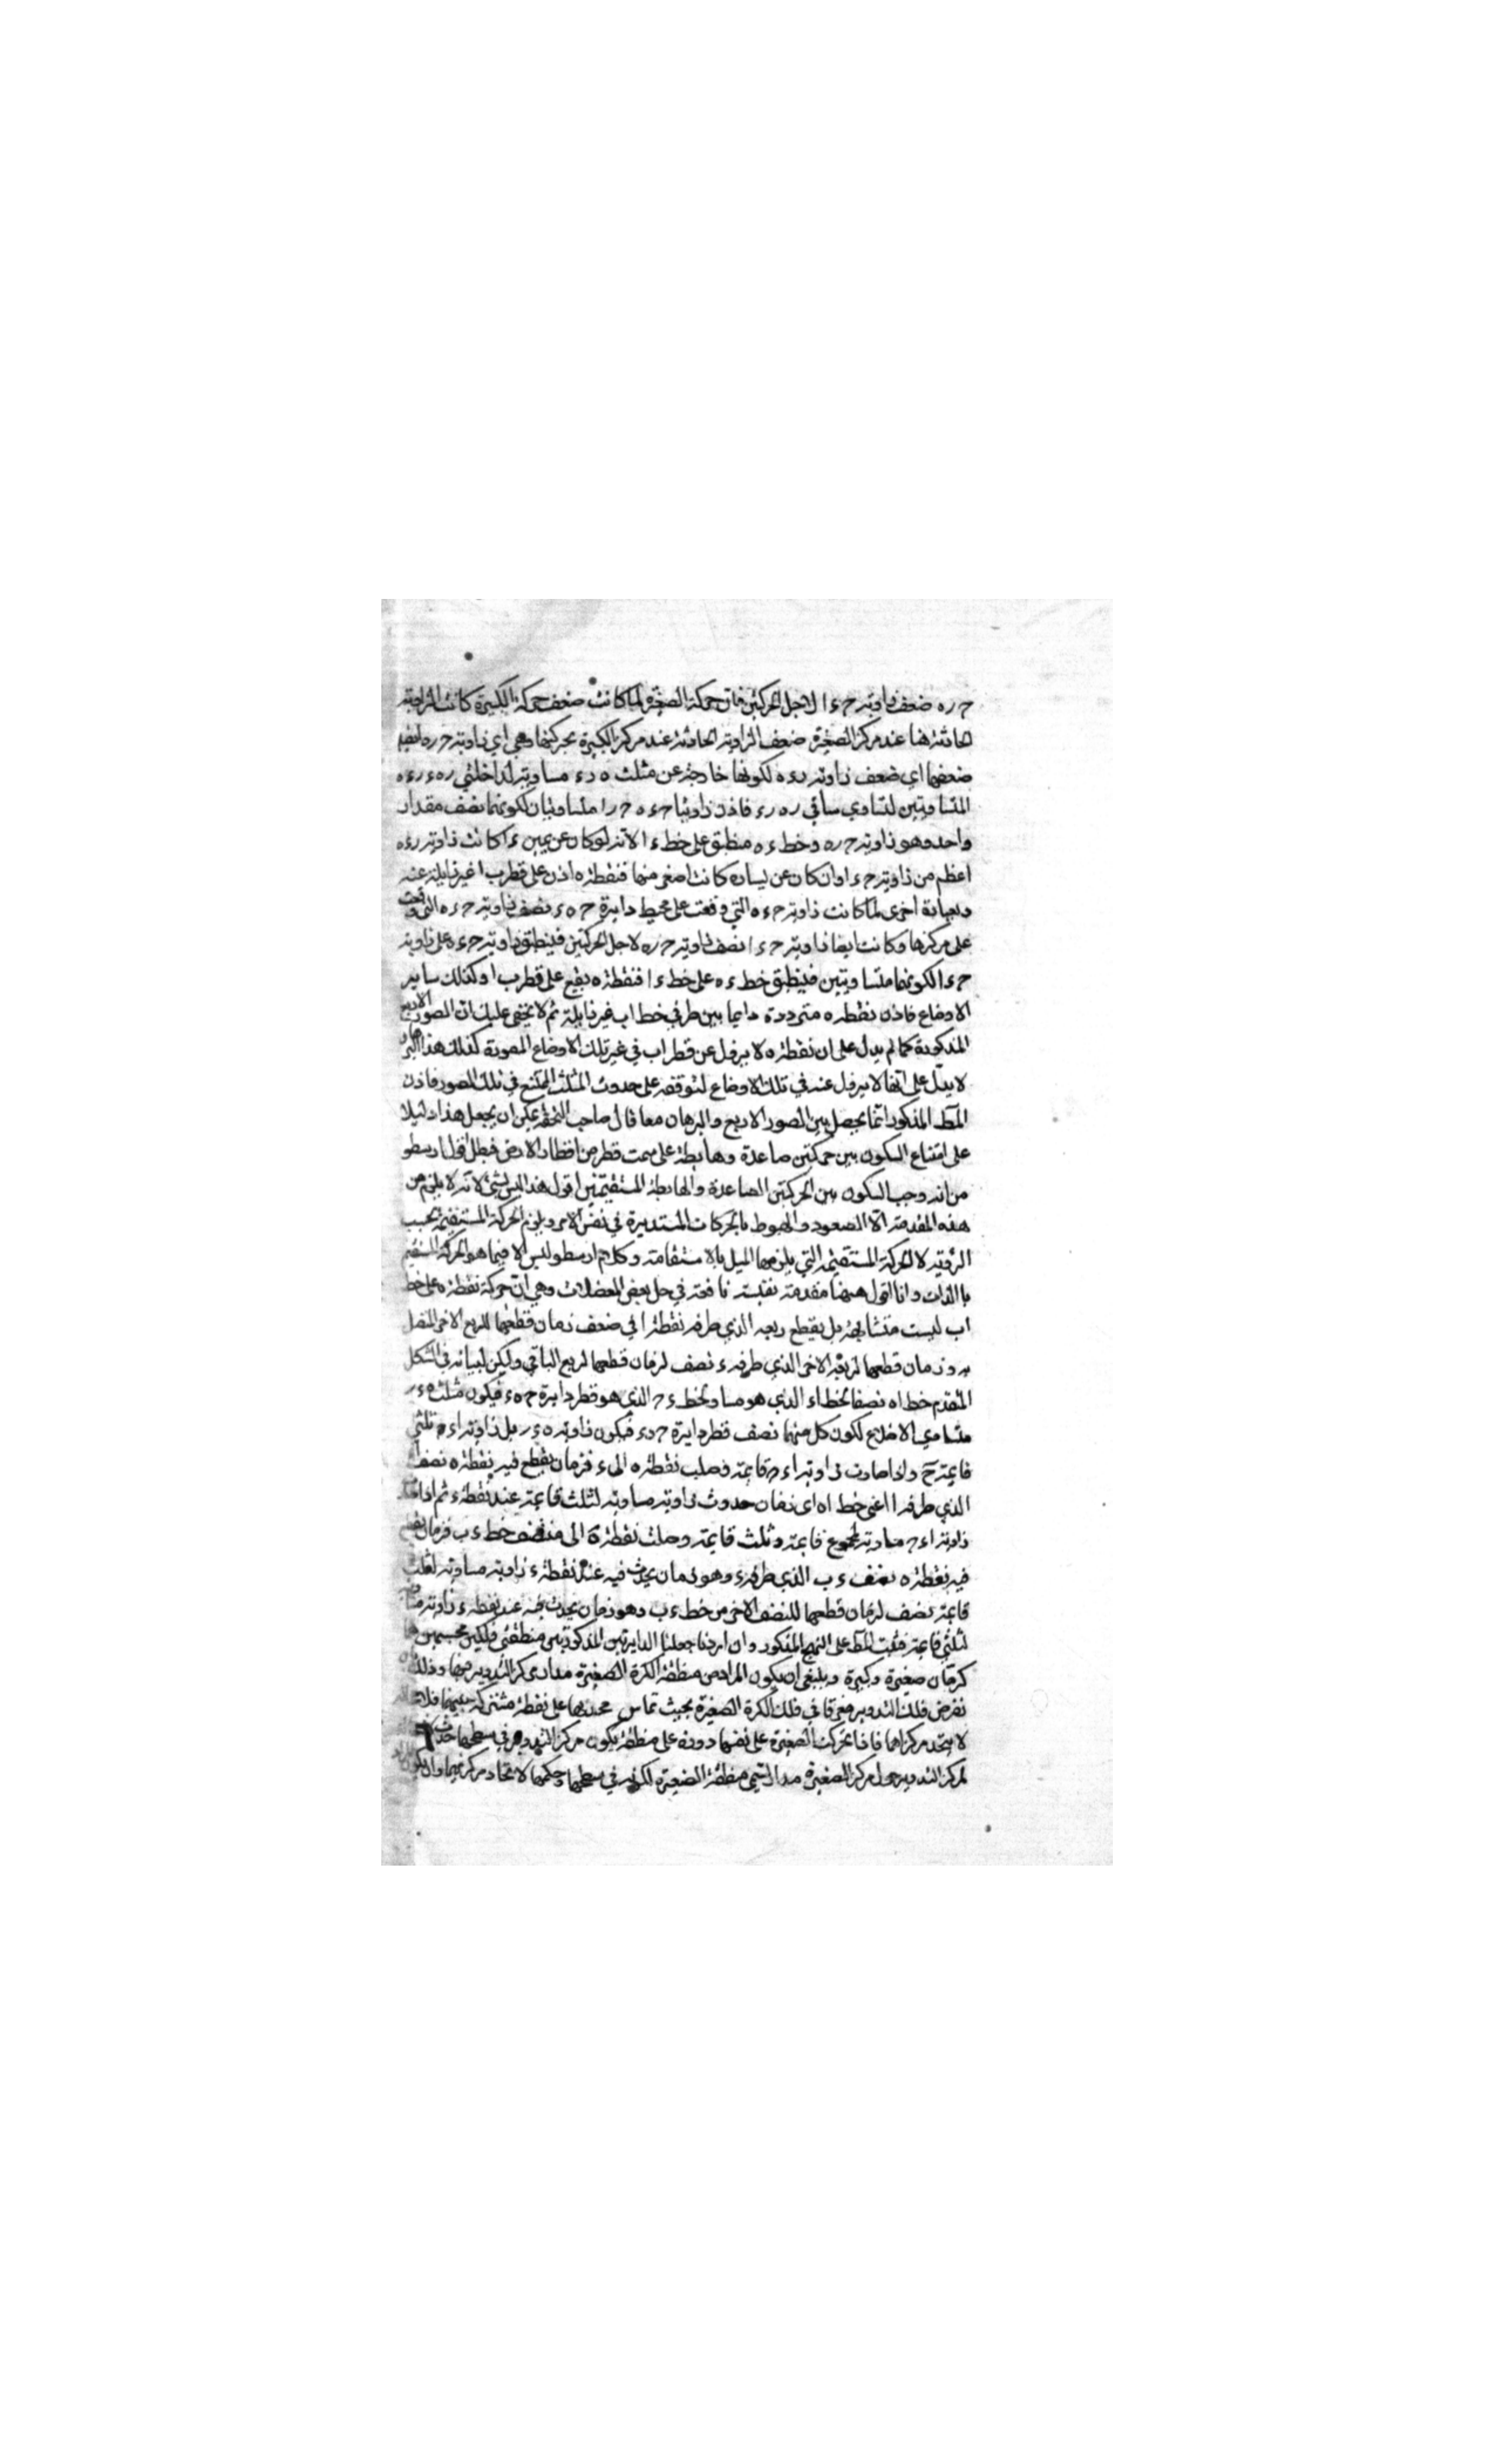 ح ر ه ضعف زاوية ح ء ا لاجل الحركتين فان حركة الصغيرة لما كانت ضعف حركة الكبيرة كانت الزاوية
الحادثة هنا عند مركز الصغيرة ضعف الزاوية الحادثة عند مركز الكبيرة بحركتهما وهي اي زاوية ح ره ايضا
ضعفها اي ضعف زاوية رء ه لكونها خارجة عن مثلث ه ر ء مساوية لداخلتي ره ء رء ه
المتساويتين لتساوي ساقي ره رء فاذن زاويتا حء ه ح ء ا متساويتان لكونهما نصف مقدار
واحد وهو زاوية ح ره وخط ء ه منطبق على خط ء ا لانه لو كان عن يمين ء ا كانت زاوية رء ه
اعظم من زاوية ح ء ا وان كان عن يساره كانت اصغر منها فنقطة ه اذن على قطر ب ا غير زايلة عنه
وبعبارة اخرى لما كانت زاوية ح ء ه التي وقعت على محيط دايرة ح ه ء نصف زاوية ح ر ه التي وقعت
على مركزها وكانت ايضا زاوية ح ء ا نصف زاوية ح ره لاجل الحركتين فينطبق زاوية ح ء ه على زاوية
ح ء ا لكونهما متساويتين فينطبق خط ء ه على خط ء ا فنقطة ه يقع على قطر ب ا وكذلك ساير
الاوضاع فاذن نقطة ه مترددة دايما بين طرفي خط اب غير زايلة ثم لا يخفى عليك ان الصور الاربع
المذكورة كما لم يدل على ان نقطة ه لا يزول عن قطر اب في غير تلك الاوضاع المصورة كذلك هذا البرهان
لا يدل على انها لا يزول عنه في تلك الاوضاع لتوقفه على حدوث المثلث الممتنع في تلك الصور فاذن
المط المذكور انما يحصل بين الصور الاربع والبرهان معا قال صاحب التحفة يمكن ان يجعل هذا دليلا
على امتناع السكون بين حركتين صاعدة وهابطة على سمت قطر من اقطار الارض فبطل قول ارسطو
من انه وجب السكون بين الحركتين الصاعدة والهابطة المستقيمتين اقول هذا ليس بشئ لانه لا يلزم من
هذه المقدمة الا الصعود والهبوط بالحركات المستديرة في نفس الامر ويلزم الحركة المستقيمة بحسب
الرؤية لا الحركة المستقيمة التي يلزمها الميل بالاستقامة وكلام ارسطو ليس الا فيما هو الحركة المستقيمة
بالذات وانا اقول ههنا مقدمة نفيسة نافعة في حل بعض المعضلات وهي ان حركة نقطة ه على خط
اب ليست متشابهة بل يقطع ربعه الذي طرفه نقطة ا في ضعف زمان قطعها للربع الاخر المتصل
به وزمان قطعها لربعه الاخر الذي طرفه ء نصف لزمان قطعها لربع الباقي وليكن لبيانه في الشكل
المتقدم خط اه نصفا لخط اء الذي هو مساو لخط ء ح الذي هو قطر دايرة ح ه ء فيكون مثلث ه ء ر
متساوي الاضلاع لكون كل منها نصف قطر دايرة ح ه ء فيكون زاوية ه ء ر بل زاوية ا ء ح ثلثي
قايمة ح واذا صارت زاوية ا ء ح قايمة وصلت نقطة ه الى ء فزمان يقطع فيه نقطة ه نصف اء
الذي طرفه ا اعني خط اه اي زمان حدوث زاوية مساوية لثلث قايمة عند نقطة ء ثم اذا كانت
زاوية ا ء ح مساوية لمجموع قايمة وثلث قايمة وصلت نقطة ه الى منتصف خط ء ب فزمان يقطع
فيه نقطة ه نصف ء ب الذي طرفه ء وهو زمان يحدث فيه عند نقطة ء زاوية مساوية لثلث
قايمة نصف لزمان قطعها للنصف الاخر من خط ء ب وهو زمان يحدث فيه عند نقطة ء زاوية مساوية
لثلثي قايمة فثبت المط على النهج المذكور وان اردنا جعلنا الدايرتين المذكورتين منطقتي فلكين مجسمين
كرتان صغيرة وكبيرة وينبغي ان يكون المراد من منطقة الكرة الصغيرة مدار مركز التدوير منها وذلك
نفرض فلك التدوير مغرقا في فلك الكرة الصغيرة بحيث تماس محدبهما على نقطة مشتركة بينهما
لا يتحد مركزاهما فاذا تحركت الصغيرة على نفسها دورة على منطقة يكون مركز التدوير في سطحها حدث
لمركز التدوير حول مركز الصغيرة مدار يسمى منطقة الصغيرة لكونه في سطحها وحكمها لاتحاد مركزيهما وان يكون